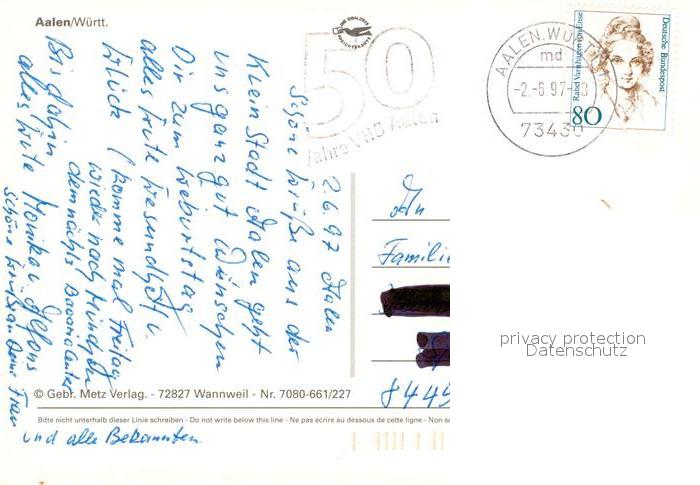 Aalen/Württ.
50
Jahre VHS Aalen
AALEN, WÜRTT
md
-2.-6.97-
73430
Rahel Varnhagen von Ense
Deutsche Bundespost
80
2.6.97 Aalen
Schöne Grüße aus der
Klein Stadt Aalen geht
uns ganz gut Wünschen
Dir zum Geburtstag
alles Gute Gesundheit u.
Glück (komme mal Freitag
wieder nach München
demnächst Bavaria Center
Bis dahin
alles Gute Monika u. Alfons
Schöne Grüße an Deine Frau
und alle Bekannten
An
Familie
8445
privacy protection
Datenschutz
© Gebr. Metz Verlag. - 72827 Wannweil - Nr. 7080-661/227
Bitte nicht unterhalb dieser Linie schreiben - Do not write below this line - Ne pas écrire au dessous de cette ligne - Non s